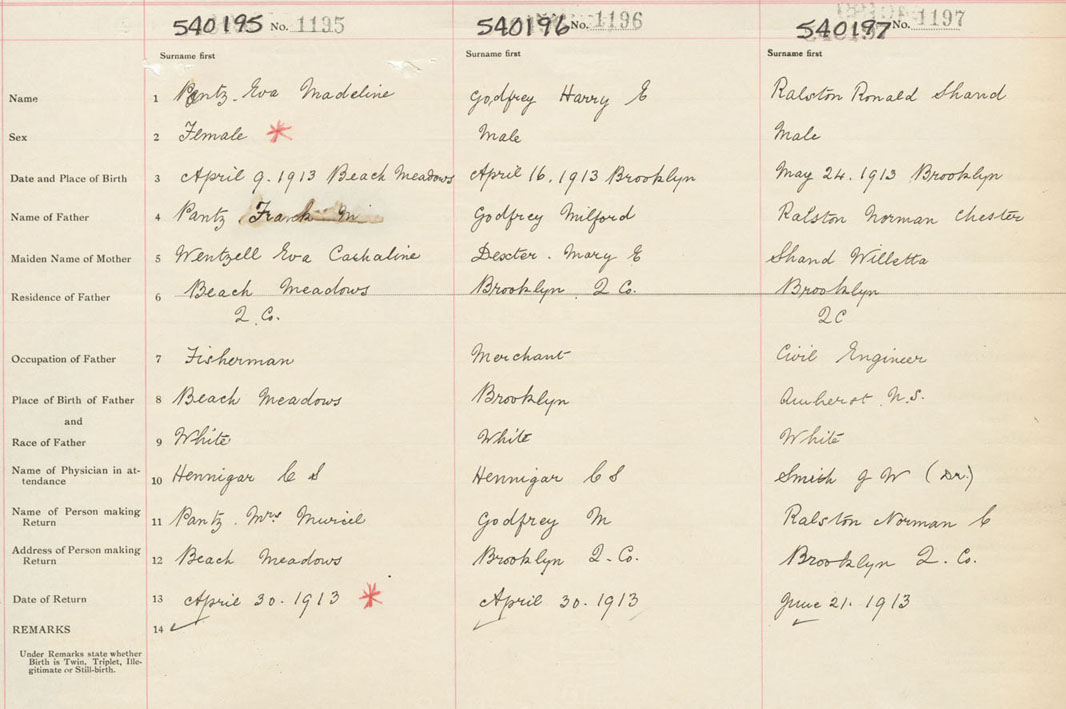 540195 No. 1195 540196 No. 1196 540197 No. 1197
Surname first Surname first Surname first
Name 1 Pentz Eva Madeline Godfrey Harry E Ralston Ronald Shand
Sex 2 Female * Male Male
Date and Place of Birth 3 April 9. 1913 Beach Meadows April 16. 1913 Brooklyn May 24. 1913 Brooklyn
Name of Father 4 Pantz Frank M Godfrey Milford Ralston Norman Chester
Maiden Name of Mother 5 Wentzell Eva Cashaline Dexter. Mary E Shand Willetta
Residence of Father 6 Beach Meadows Brooklyn Q Co. Brooklyn
Q. Co. QC
Occupation of Father 7 Fisherman Merchant Civil Engineer
Place of Birth of Father 8 Beach Meadows Brooklyn Amherst N.S.
and
Race of Father 9 White White White
Name of Physician in at-
tendance 10 Hennigar C S Hennigar C S Smith J W (Dr.)
Name of Person making
Return 11 Pantz. Mrs Muriel Godfrey M Ralston Norman C
Address of Person making
Return 12 Beach Meadows Brooklyn Q. Co. Brooklyn Q. Co.
Date of Return 13 April 30. 1913 * April 30. 1913 June 21. 1913
REMARKS 14
Under Remarks state whether
Birth is Twin, Triplet, Ille-
gitimate or Still-birth.